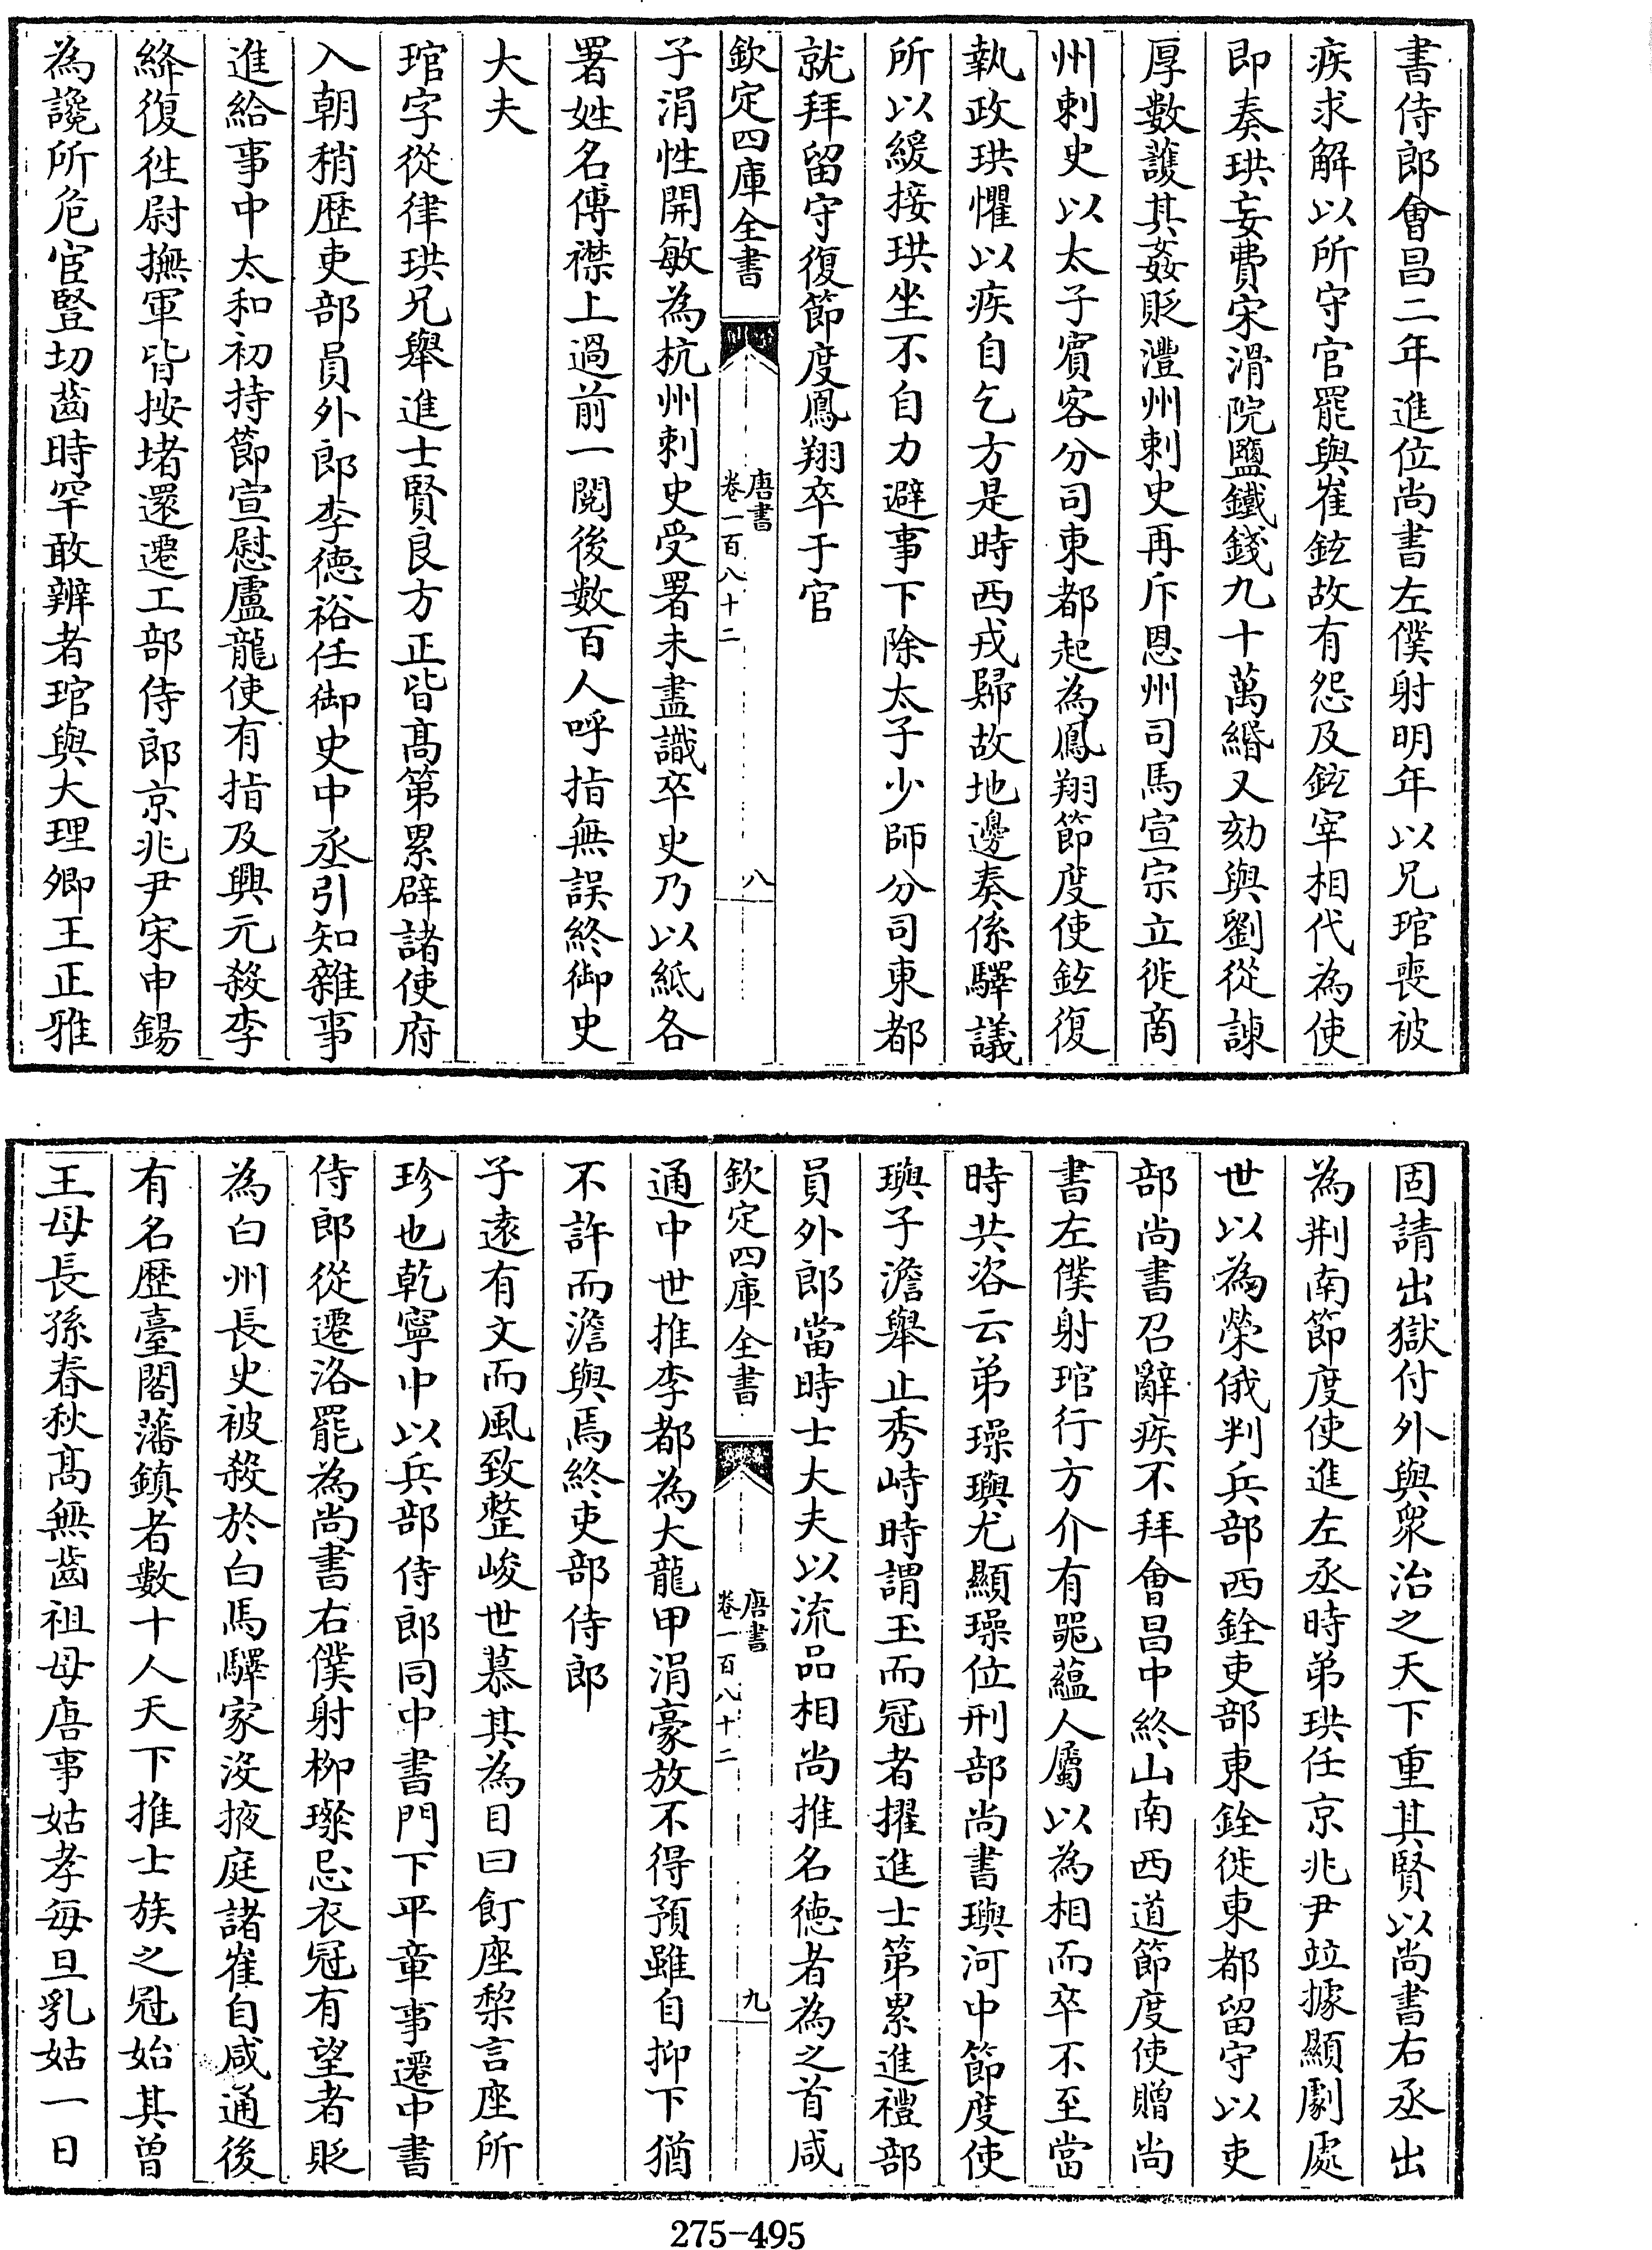 書侍郎會昌二年進位尚書左僕射明年以兄琯喪被
疾求解以所守官罷與崔鉉故有怨及鉉宰相代為使
即奏珙妄費宋滑院鹽鐵錢九十萬緡又劾與劉從諫
厚數護其姦貶澧州刺史再斥恩州司馬宣宗立徙商
州刺史以太子賓客分司東都起為鳳翔節度使鉉復
執政珙懼以疾自乞方是時西戎歸故地邊奏係驛議
所以緩接珙坐不自力避事下除太子少師分司東都
就拜留守復節度鳳翔卒于官
欽定四庫全書
唐書
卷一百八十二
八
子涓性開敏為杭州刺史受署未盡識卒史乃以紙各
署姓名傅襟上過前一閱後數百人呼指無誤終御史
大夫
琯字從律珙兄舉進士賢良方正皆髙第累辟諸使府
入朝稍歴吏部員外郎李德裕任御史中丞引知雜事
進給事中太和初持節宣慰盧龍使有指及興元殺李
絳復徃尉撫軍皆按堵還遷工部侍郎京兆尹宋申錫
為讒所危宦豎切齒時罕敢辨者琯與大理卿王正雅
固請出獄付外與衆治之天下重其賢以尚書右丞出
為荆南節度使進左丞時弟珙任京兆尹竝據顯劇處
世以為榮俄判兵部西銓吏部東銓徙東都留守以吏
部尚書召辭疾不拜會昌中終山南西道節度使贈尚
書左僕射琯行方介有器藴人屬以為相而卒不至當
時共咨云弟璪璵尤顯璪位刑部尚書璵河中節度使
璵子澹舉止秀峙時謂玉而冠者擢進士第累進禮部
員外郎當時士大夫以流品相尚推名德者為之首咸
欽定四庫全書
唐書
卷一百八十二
九
通中世推李都為大龍甲涓豪放不得預雖自抑下猶
不許而澹與焉終吏部侍郎
子遠有文而風致整峻世慕其為目曰飣座棃言座所
珍也乾寧中以兵部侍郎同中書門下平章事遷中書
侍郎從遷洛罷為尚書右僕射柳璨忌衣冠有望者貶
為白州長史被殺於白馬驛家没掖庭諸崔自咸通後
有名歴臺閣藩鎮者數十人天下推士族之冠始其曾
王母長孫春秋髙無齒祖母唐事姑孝每旦乳姑一日
275-495